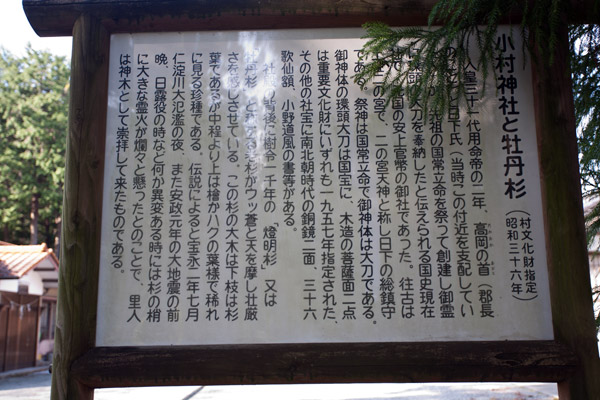 小村神社と牡丹杉
(村文化財指定
昭和三十六年)
人皇三十一代用明帝の二年、高岡の首(郡長
日下氏(当時この付近を支配してい
祖の国常立命を祭って創建し御霊
頭大刀を奉納したと伝えられる国史現在
国の安上官幣の御社であつた。往古は
二の宮で、二の宮天神と称し日下の総鎮守
である。祭神は国常立命で御神体は大刀である。
御神体の環頭大刀は国宝に、木造の菩薩面二点
は重要文化財にいずれも一九五七年指定された、
その他の社宝に南北朝時代の銅鏡二面、三十六
歌仙額、小野道風の書等がある。
背後に樹令一千年の「燈明杉」又は
牡丹杉」と称する老杉が一ッ蒼と天を摩し壮厳
させている。この杉の大木は下枝は杉
葉であるが中程より上は檜かハクの葉様で稀れ
に見る珍種である。伝説によると宝永二年七月
仁淀川大氾濫の夜、また安政元年の大地震の前
晩、日露役の時など何か異変ある時には杉の梢
に大きな霊火が爛々と懸ったとのことで、里人
は神木として崇拝して来たものである。